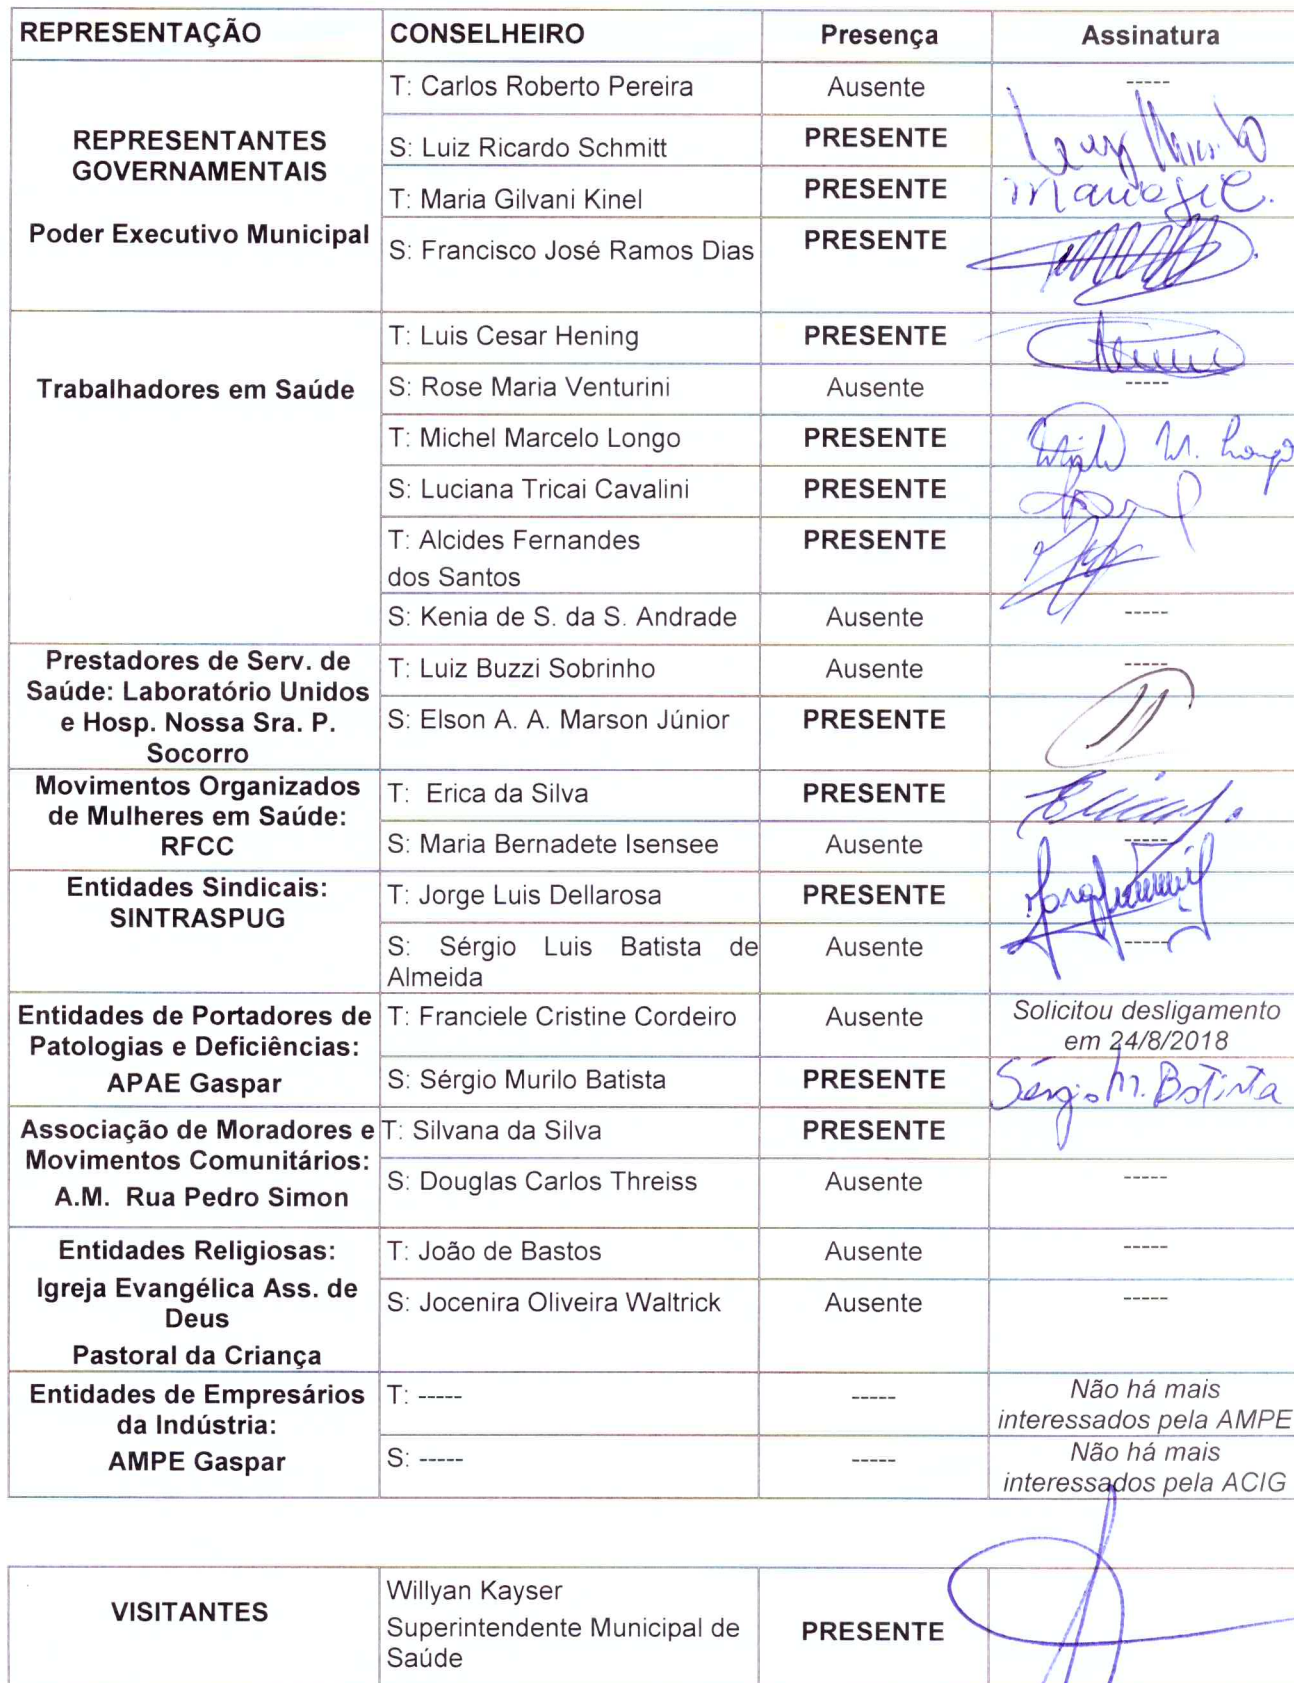 REPRESENTAÇÃO CONSELHEIRO Presença Assinatura
REPRESENTANTES
GOVERNAMENTAIS
Poder Executivo Municipal
T: Carlos Roberto Pereira Ausente -----
S: Luiz Ricardo Schmitt PRESENTE
T: Maria Gilvani Kinel PRESENTE
S: Francisco José Ramos Dias PRESENTE
Trabalhadores em Saúde
T: Luis Cesar Hening PRESENTE
S: Rose Maria Venturini Ausente -----
T: Michel Marcelo Longo PRESENTE
S: Luciana Tricai Cavalini PRESENTE
T: Alcides Fernandes PRESENTE
dos Santos
S: Kenia de S. da S. Andrade Ausente -----
Prestadores de Serv. de
Saúde: Laboratório Unidos
e Hosp. Nossa Sra. P.
Socorro
T: Luiz Buzzi Sobrinho Ausente -----
S: Elson A. A. Marson Júnior PRESENTE
Movimentos Organizados
de Mulheres em Saúde:
RFCC
T: Erica da Silva PRESENTE
S: Maria Bernadete Isensee Ausente -----
Entidades Sindicais:
SINTRASPUG
T: Jorge Luis Dellarosa PRESENTE
S: Sérgio Luis Batista de Ausente -----
Almeida
Entidades de Portadores de
Patologias e Deficiências:
APAE Gaspar
T: Franciele Cristine Cordeiro Ausente Solicitou desligamento
em 24/8/2018
S: Sérgio Murilo Batista PRESENTE Sérgio M. Batista
Associação de Moradores e
Movimentos Comunitários:
A.M. Rua Pedro Simon
T: Silvana da Silva PRESENTE
S: Douglas Carlos Threiss Ausente -----
Entidades Religiosas:
Igreja Evangélica Ass. de
Deus
Pastoral da Criança
T: João de Bastos Ausente -----
S: Jocenira Oliveira Waltrick Ausente -----
Entidades de Empresários
da Indústria:
AMPE Gaspar
T: ----- ----- Não há mais
interessados pela AMPE
S: ----- ----- Não há mais
interessados pela ACIG
VISITANTES
Willyan Kayser
Superintendente Municipal de PRESENTE
Saúde